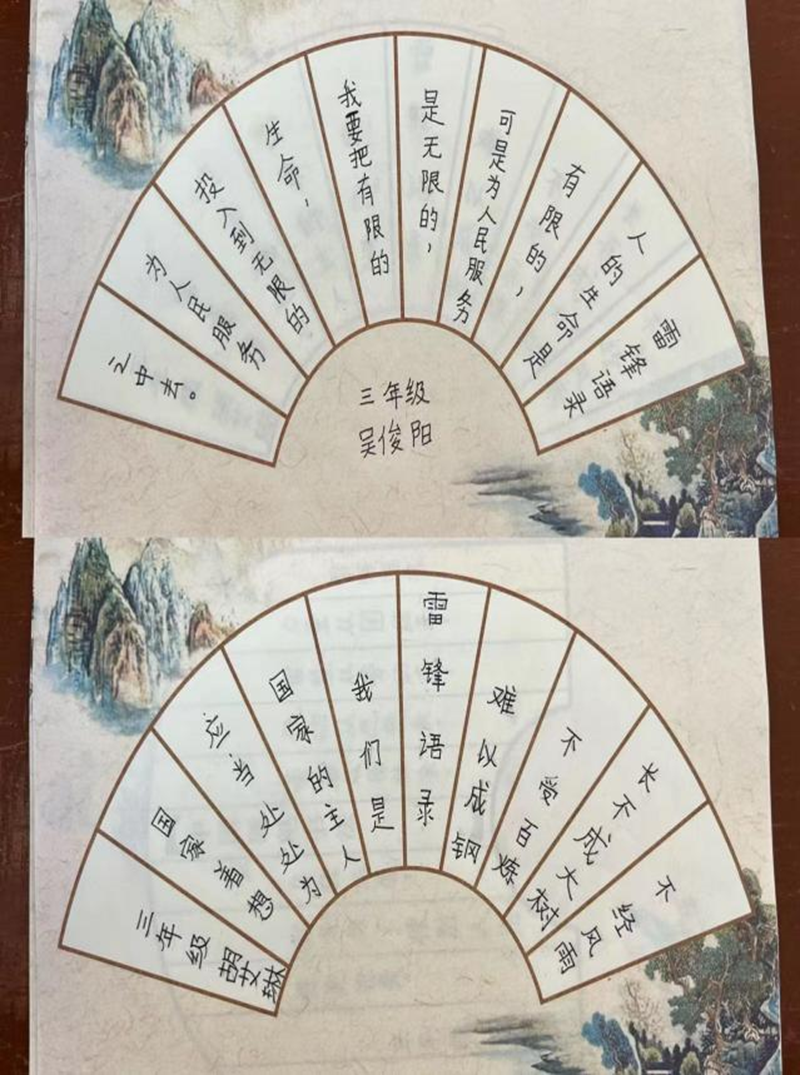 雷锋语录
人的生命是
有限的，
可是为人民服务
是无限的，
我要把有限的
生命，
投入到无限的
为人民服务
之中去。
三年级
吴俊阳
不经风雨
长不成大树
不受百炼
难以成钢
雷锋语录
我们是
国家的主人
应当处处为
国家着想
三年级胡艾琳